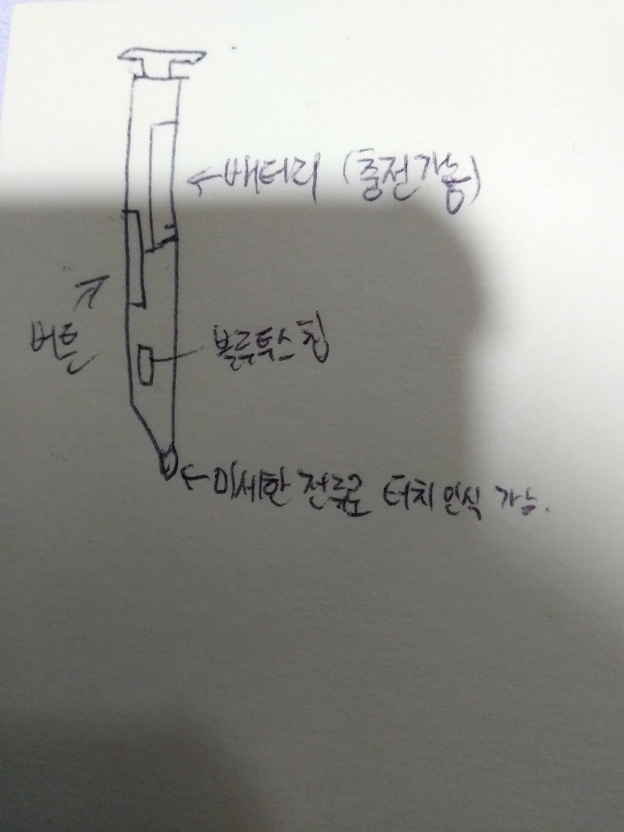 ←배터리 (충전가능)
버튼
블루투스 칩
←미세한 전류로 터치 인식 가능.